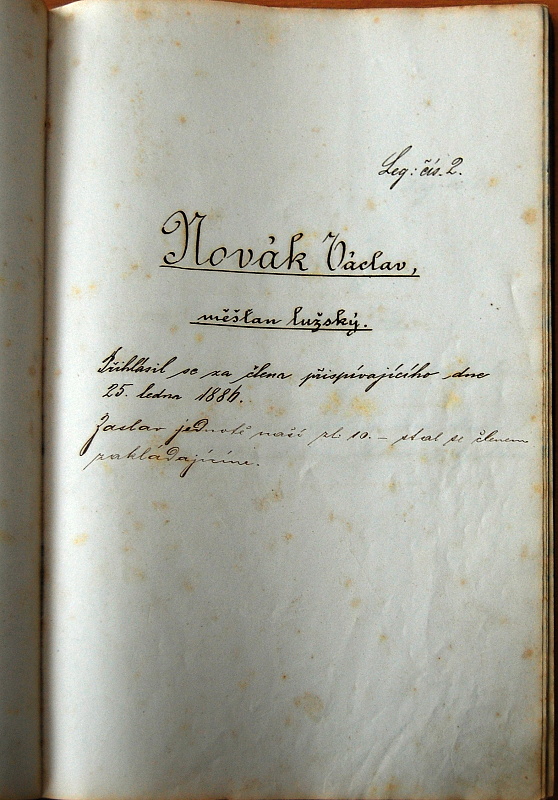 Leg: čís. 2.
Novák Václav,
měšťan lužský.
Přihlásil se za člena přispívajícího dne
25. ledna 1886.
Zaslav jednotě naší zl 10.– stal se členem
zakladajícím.